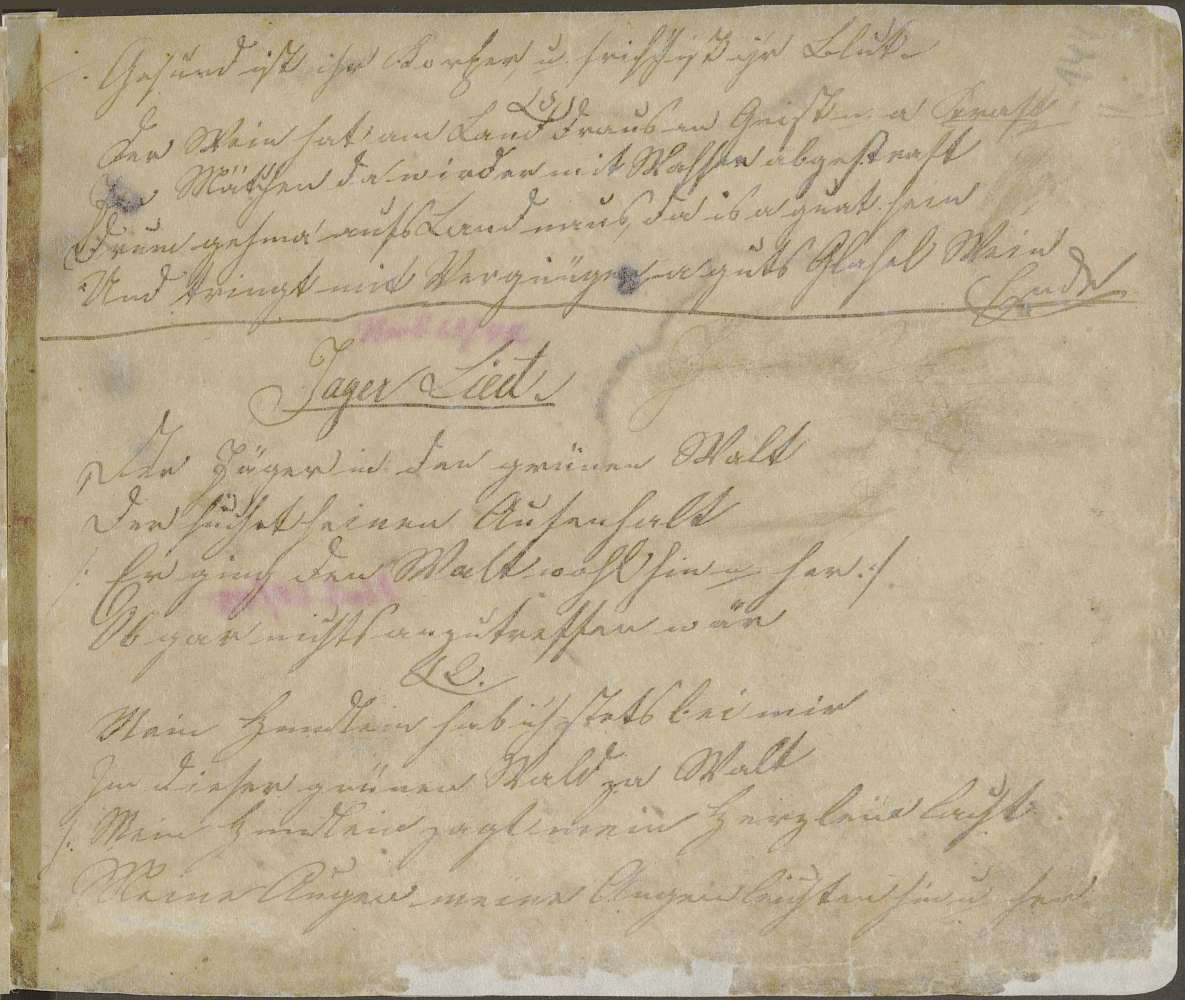 Gesund ist ihr Korper u. frisch ist ihr Blut.
(5.)
Der Wein hat am Land draus an Geist u. a Kraft
In Mäthen da wird er mit Wasser abgestraft
Drum gehma aufs Land naus, da is a guat sein
Und tringt mit Vergnügen a guts Glasel Wein
Ende
Jager Lied.
Der Jäger in den grünen Walt
Der suchet seinen Aufenhalt
/: Er ging den Walt wohl hin u. her :/
Ob gar nichts anzutreffen wär
(2.
Mein Hundlein hab ich stets bei mir
In dieser grünen Wald za Walt
/: Mein Hundlein jagt mein Herzlein lacht
Meine Augen meine Augen leuchten hin u. her